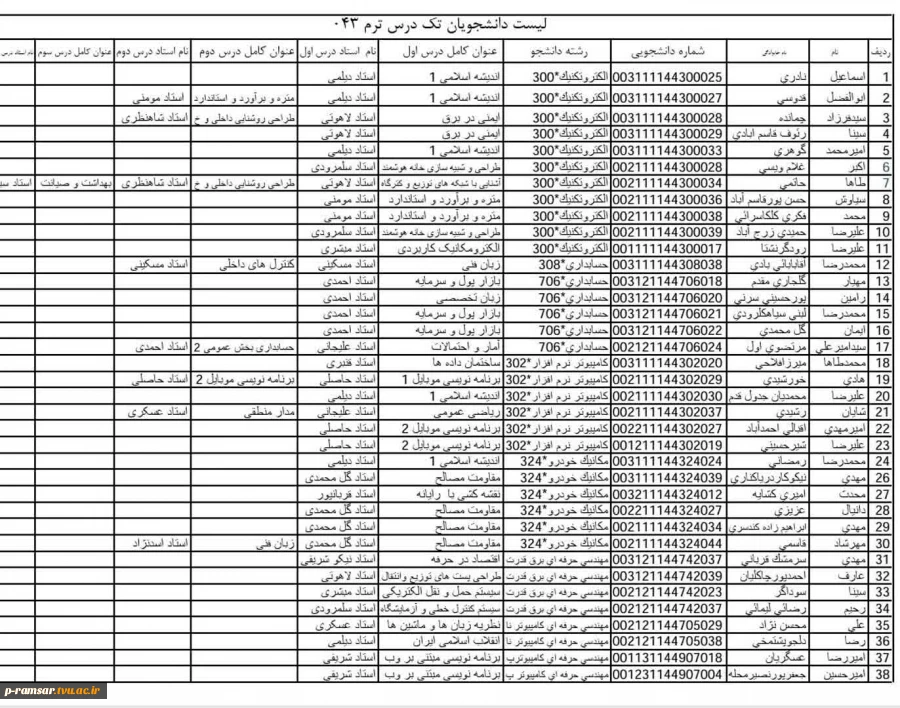 لیست دانشجویان تک درس ترم ۰۴۳
ردیف نام نام خانوادگی شماره دانشجویی رشته دانشجو عنوان کامل درس اول نام استاد درس اول عنوان کامل درس دوم نام استاد درس دوم عنوان کامل درس سوم
1 اسماعیل نادري 003111144300025 الکتروتکنیك*300 اندیشه اسلامی 1 استاد دیلمی
2 ابوالفضل قدوسي 003111144300027 الکتروتکنیك*300 اندیشه اسلامی 1 استاد دیلمی متره و برآورد و استاندارد استاد مومنی
3 سیدفرزاد چمانده 003111144300028 الکتروتکنیك*300 ایمنی در برق استاد لاهوتی طراحی روشنایی داخلی و خ استاد شاهنظری
4 سینا رئوف قاسم آبادي 003111144300029 الکتروتکنیك*300 ایمنی در برق استاد لاهوتی
5 امیرمحمد گوهري 003111144300033 الکتروتکنیك*300 اندیشه اسلامی 1 استاد دیلمی
6 اکبر غلام ویسي 002111144300028 الکتروتکنیك*300 طراحی و شبیه سازی خانه هوشمند استاد سلمرودی
7 طاها حاتمي 002111144300034 الکتروتکنیك*300 آشنایی با شبکه های توزیع و کنرگاه استاد لاهوتی طراحی روشنایی داخلی و خ استاد شاهنظری بهداشت و صیانت
8 سیاوش حسن پورقاسم آباد 002111144300036 الکتروتکنیك*300 متره و برآورد و استاندارد استاد مومنی
9 محمد فکري گلکاسرائي 002111144300038 الکتروتکنیك*300 متره و برآورد و استاندارد استاد مومنی
10 علیرضا حمیدي زرج آباد 002111144300039 الکتروتکنیك*300 طراحی و شبیه سازی خانه هوشمند استاد سلمرودی
11 علیرضا رودگرنشتا 001111144300017 الکتروتکنیك*300 الکترومکانیک کاربردی استاد مبشری
12 محمدرضا آقابابائي بادي 003111144308038 حسابداري*308 زبان فنی استاد مسکینی کنترل های داخلی استاد مسکینی
13 مهیار گلجاري مقدم 003121144706018 حسابداري*706 بازار پول و سرمایه استاد احمدی
14 رامین پورحسیني سرني 003121144706020 حسابداري*706 زبان تخصصی استاد احمدی
15 محمدرضا لیني سیاهکلرودي 003121144706021 حسابداري*706 بازار پول و سرمایه استاد احمدی
16 ایمان گل محمدي 003121144706022 حسابداري*706 بازار پول و سرمایه استاد احمدی
17 سیدامیرعلي مرتضوي اول 002121144706024 حسابداري*706 آمار و احتمالات استاد علیجانی حسابداری بخش عمومی 2 استاد احمدی
18 محمدطاها میرزافلاحي 003111144302020 کامپیوتر نرم افزار*302 ساختمان داده ها استاد قنبری
19 هادي خورشیدي 002111144302029 کامپیوتر نرم افزار*302 برنامه نویسی موبایل 1 استاد حاصلی برنامه نویسی موبایل 2 استاد حاصلی
20 علیرضا محمدیان جدول قدم 002111144302030 کامپیوتر نرم افزار*302 اندیشه اسلامی 1 استاد دیلمی
21 شایان رشیدي 002111144302037 کامپیوتر نرم افزار*302 ریاضی عمومی استاد علیجانی مدار منطقی استاد عسکری
22 امیرمهدي اقبالي احمدآباد 002211144302027 کامپیوتر نرم افزار*302 برنامه نویسی موبایل 2 استاد حاصلی
23 علیرضا شیرحسیني 001211144302019 کامپیوتر نرم افزار*302 برنامه نویسی موبایل 2 استاد حاصلی
24 محمدرضا رمضاني 003111144324024 مکانیك خودرو*324 اندیشه اسلامی 1 استاد دیلمی
26 مهدي نیکوکاردریاکناري 003111144324039 مکانیك خودرو*324 مقاومت مصالح استاد گل محمدی
27 محدت امیري کشابه 003211144324012 مکانیك خودرو*324 نقشه کشی با رایانه استاد قربانپور
28 دانیال عزیزي 002211144324027 مکانیك خودرو*324 مقاومت مصالح استاد گل محمدی
29 مهدي ابراهیم زاده کندسري 002111144324034 مکانیك خودرو*324 مقاومت مصالح استاد گل محمدی
30 مهرشاد قاسمي 002111144324044 مکانیك خودرو*324 مقاومت مصالح استاد گل محمدی زبان فنی استاد اسدنژاد
31 مهدي سرمشك قرباني 003121144742037 مهندسي حرفه اي برق قدرت اقتصاد در حرفه استاد نیکو شریفی
32 عارف احمدپورچاکلیان 003121144742039 مهندسي حرفه اي برق قدرت طراحی پست های توزیع وانتقال استاد لاهوتی
33 سینا سوداگر 002121144742023 مهندسي حرفه اي برق قدرت سیستم حمل و نقل الکتریکی استاد مبشری
34 رحیم رضائي لیمائي 002121144742037 مهندسي حرفه اي برق قدرت سیستم کنترل خطی و آزمایشگاه استاد سلمرودی
35 علي محسن نژاد 002121144705029 مهندسي حرفه اي کامپیوتر نا نظریه زبان ها و ماشین ها استاد عسکری
36 رضا دلجوپشتمخي 002121144705038 مهندسي حرفه اي کامپیوتر نا انقلاب اسلامی ایران استاد دیلمی
37 امیررضا عسگریان 001131144907018 مهندسي حرفه اي کامپیوترب برنامه نویسی مبتنی بر وب استاد شریفی
38 امیرحسین جعفرپورنصیرمحله 001231144907004 مهندسي حرفه اي کامپیوتر ب برنامه نویسی مبتنی بر وب استاد شریفی
p-ramsar.tvu.ac.ir